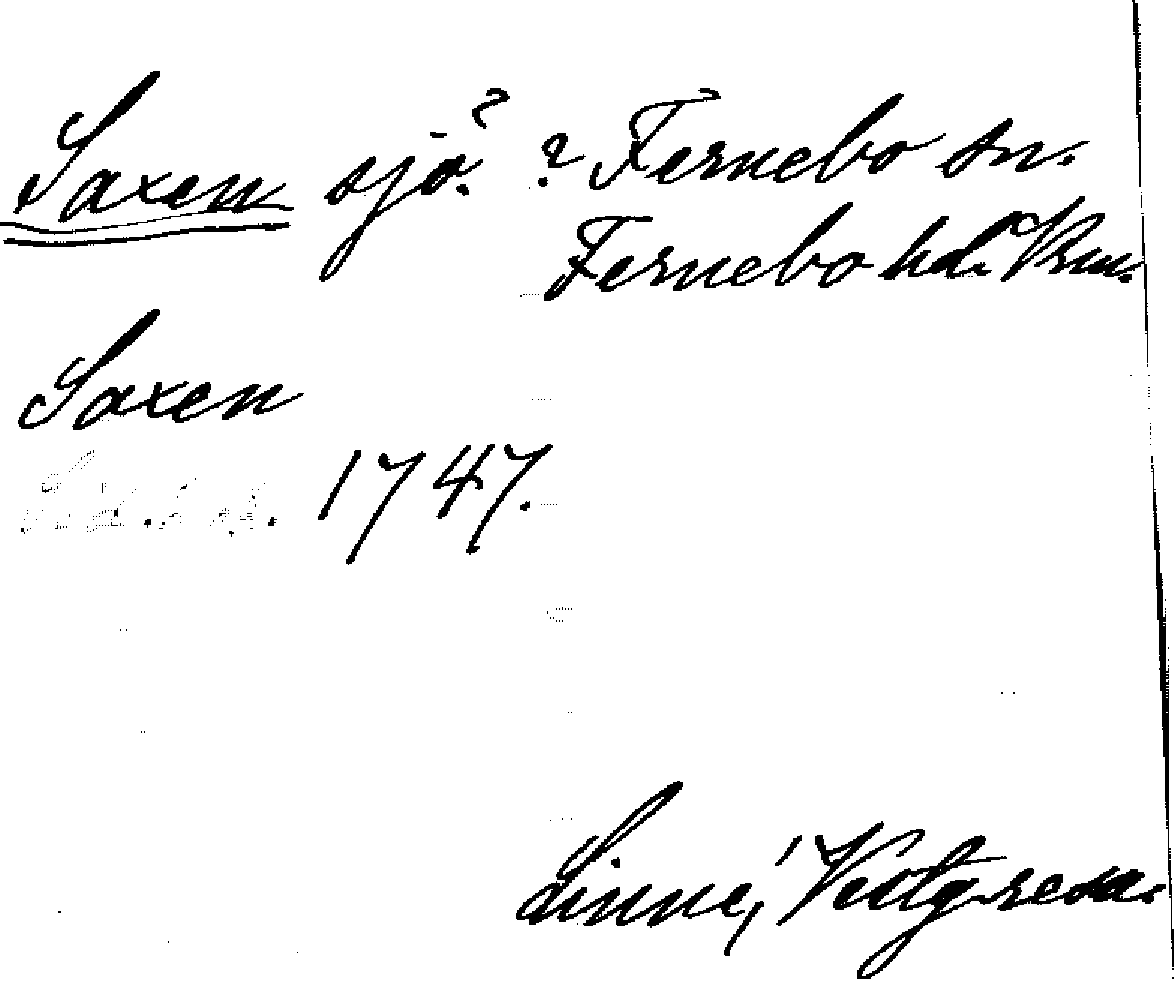 Saxen sjö? ? Fernebo sn.
Fernebo hd. Vrm.
Saxen
1747.
Linné, Vestg. resa.